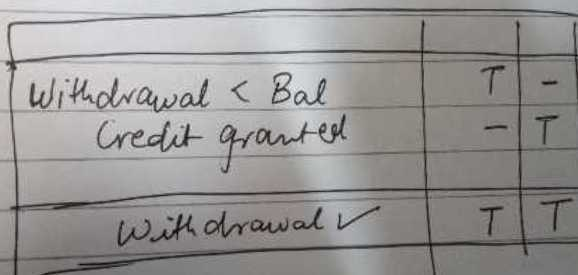 Withdrawal < Bal T -
Credit granted - T
Withdrawal ✓ T T